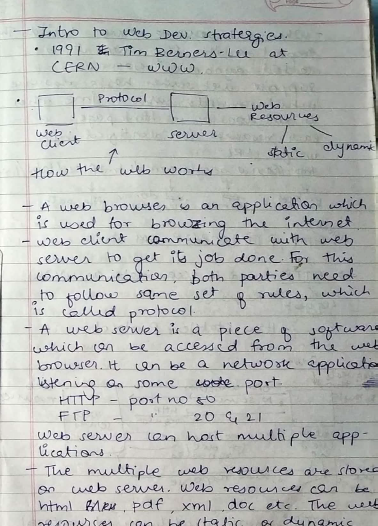 - Intro to web Dev. stratergies.
• 1991 Tim Berners-Lee at
CERN - WWW.
Protocol
web
Resources
web
client
server
static dynamic
How the web works
- A web browser is an application which
is used for browzing the internet
- web client communicate with web
server to get its job done. For this
communication, both parties need
to follow same set of rules, which
is called protocol.
- A web server is a piece of software
which can be accessed from the web
browser. It can be a network applicatio
listening on some port
HTTP - port no 80
FTP - " 20 & 21
Web server can host multiple app-
lications.
- The multiple web resources are stored
on web server. Web resources can be
html , pdf, xml, doc etc. The web
resources can be static or dynamic